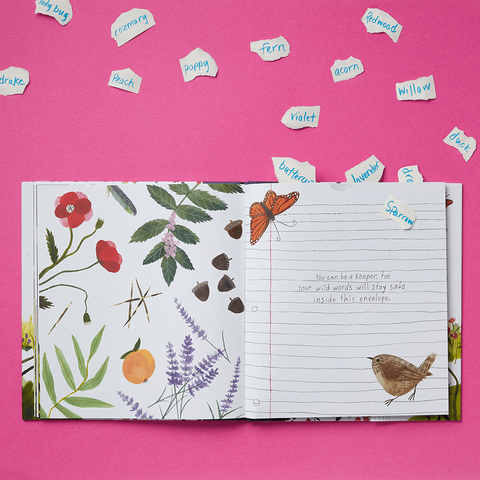 lady bug
rosemary
Redwood
fern
poppy
acorn
drake
Peach
willow
violet
duck
lavender
Sparrow
You can be a keeper, too.
Your wild words will stay safe
inside this envelope.